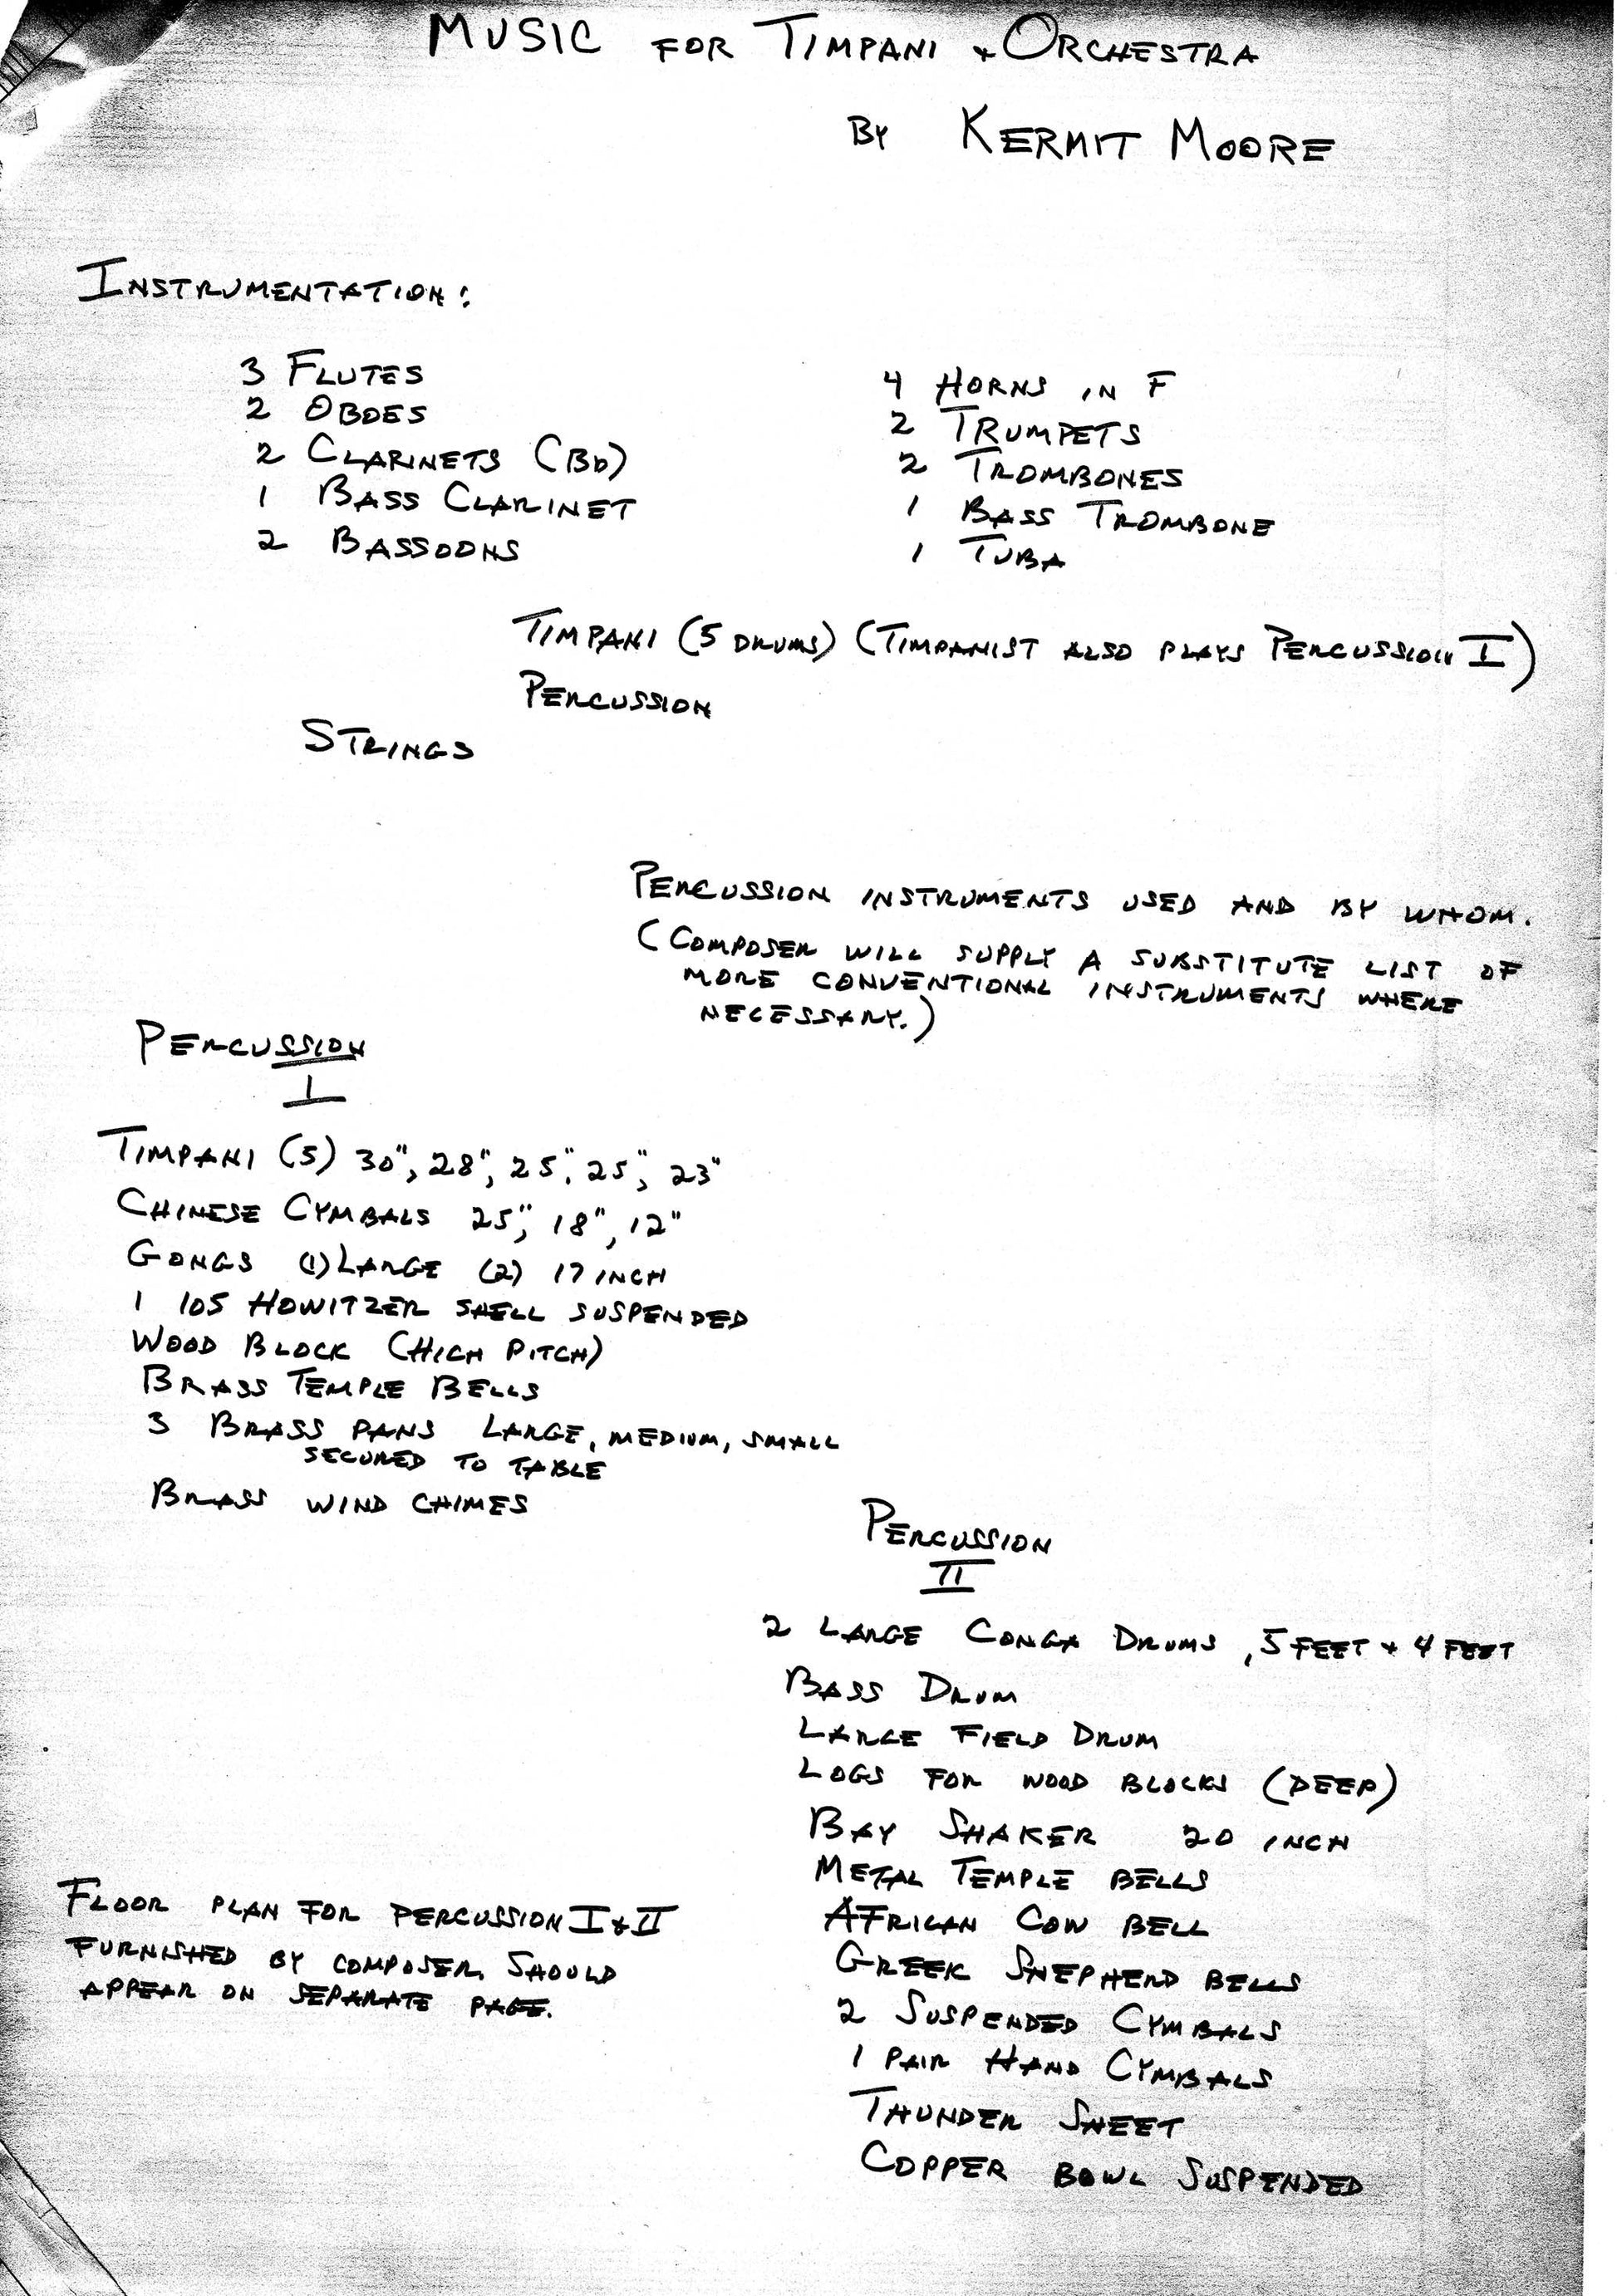 MUSIC FOR TIMPANI + ORCHESTRA
BY KERMIT MOORE
INSTRUMENTATION:
3 FLUTES
2 OBOES
2 CLARINETS (Bb)
1 BASS CLARINET
2 BASSOONS
4 HORNS IN F
2 TRUMPETS
2 TROMBONES
1 BASS TROMBONE
1 TUBA
TIMPANI (5 DRUMS) (TIMPANIST ALSO PLAYS PERCUSSION I)
PERCUSSION
STRINGS
PERCUSSION INSTRUMENTS USED AND BY WHOM.
(COMPOSER WILL SUPPLY A SUBSTITUTE LIST OF
MORE CONVENTIONAL INSTRUMENTS WHERE
NECESSARY.)
PERCUSSION
I
TIMPANI (5) 30", 28", 25", 25", 23"
CHINESE CYMBALS 25", 18", 12"
GONGS (1) LARGE (2) 17 INCH
1 105 HOWITZER SHELL SUSPENDED
WOOD BLOCK (HIGH PITCH)
BRASS TEMPLE BELLS
3 BRASS PANS LARGE, MEDIUM, SMALL
SECURED TO TABLE
BRASS WIND CHIMES
PERCUSSION
II
2 LARGE CONGA DRUMS, 5 FEET + 4 FEET
BASS DRUM
LARGE FIELD DRUM
LOGS FOR WOOD BLOCKS (DEEP)
BAY SHAKER 20 INCH
METAL TEMPLE BELLS
AFRICAN COW BELL
GREEK SHEPHERD BELLS
2 SUSPENDED CYMBALS
1 PAIR HAND CYMBALS
THUNDER SHEET
COPPER BOWL SUSPENDED
FLOOR PLAN FOR PERCUSSION I & II
FURNISHED BY COMPOSER, SHOULD
APPEAR ON SEPARATE PAGE.